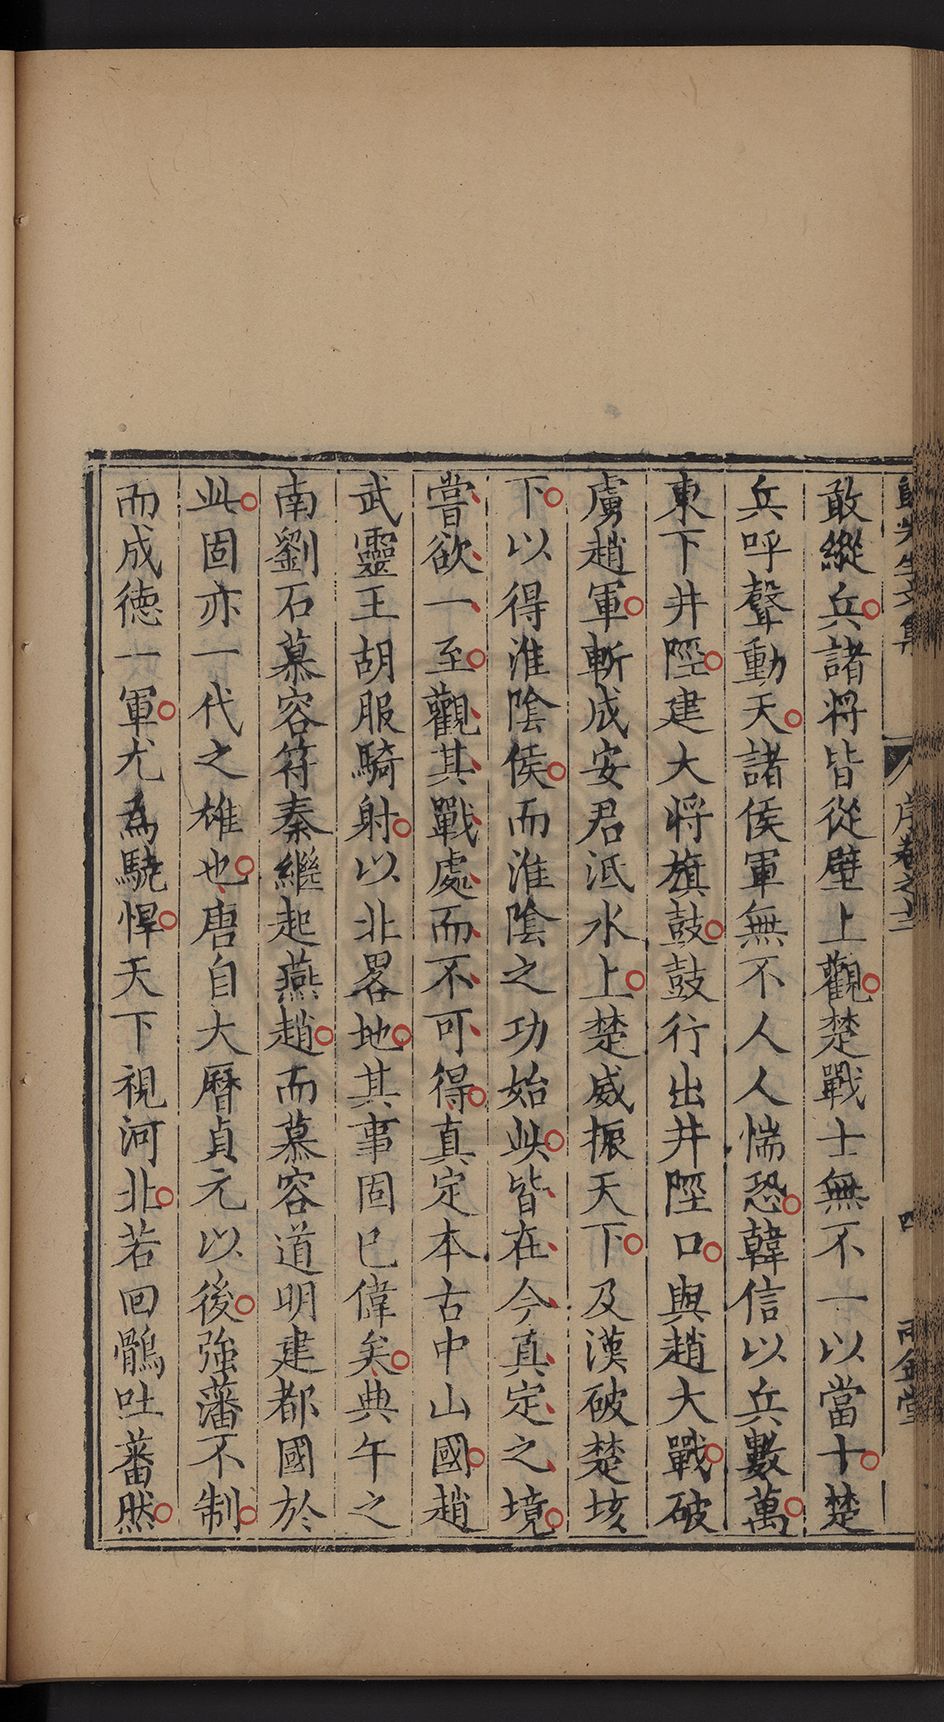 敢縱兵諸將皆從壁上觀楚戰士無不一以當十楚
兵呼聲動天諸侯軍無不人人惴恐韓信以兵數萬
東下井陘建大將旗鼓鼓行出井陘口與趙大戰破
虜趙軍斬成安君泜水上楚威振天下及漢破楚垓
下以得淮陰侯而淮陰之功始此皆在今真定之境
嘗欲一至觀其戰處而不可得真定本古中山國趙
武靈王胡服騎射以北畧地其事固已偉矣典午之
南劉石慕容符秦繼起燕趙而慕容道明建都國於
此固亦一代之雄也唐自大曆貞元以後強藩不制
而成德一軍尤為驍悍天下視河北若回鶻吐蕃然